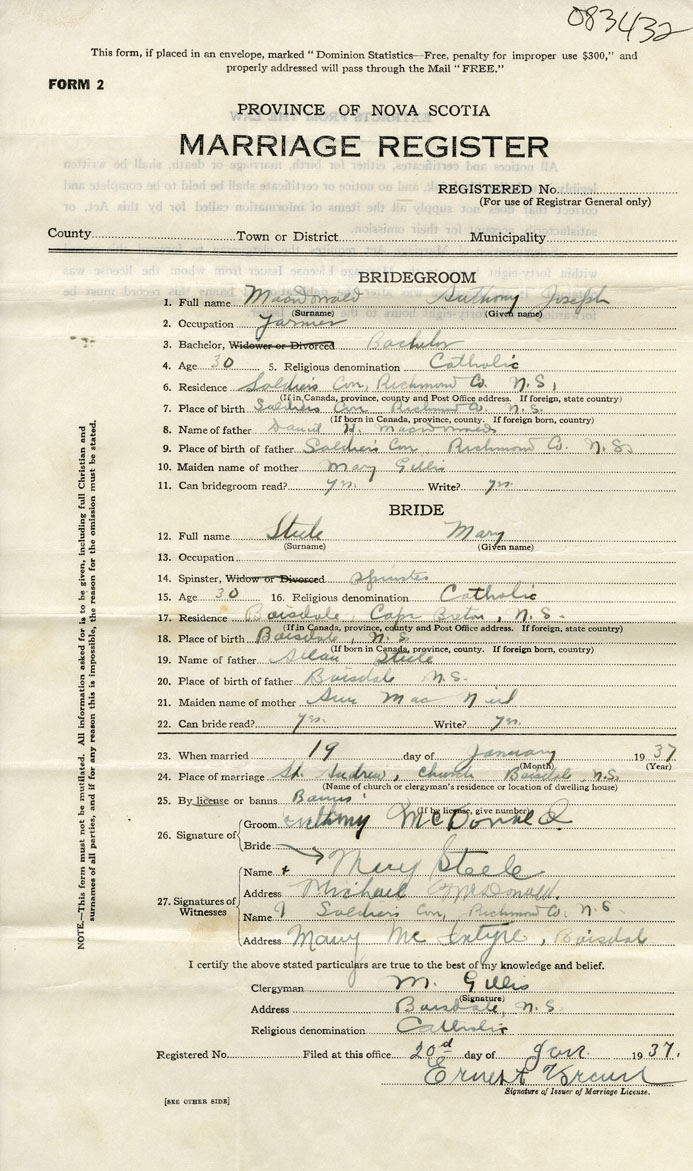 083432
This form, if placed in an envelope, marked " Dominion Statistics—Free, penalty for improper use $300," and
properly addressed will pass through the Mail " FREE."
FORM 2
PROVINCE OF NOVA SCOTIA
MARRIAGE REGISTER
REGISTERED No.
(For use of Registrar General only)
County Town or District Municipality
BRIDEGROOM
1. Full name MacDonald Anthony Joseph
(Surname) (Given name)
2. Occupation Farmer
3. Bachelor, Widower or Divorced Bachelor
4. Age 30 5. Religious denomination Catholic
6. Residence Soldiers Cov, Richmond Co. N.S.
(If in Canada, province, county and Post Office address. If foreign, state country)
7. Place of birth Soldiers Cov Richmond Co. N.S.
(If born in Canada, province, county. If foreign born, country)
8. Name of father Daniel H. MacDonald
9. Place of birth of father Soldiers Cov, Richmond Co. N.S.
10. Maiden name of mother Mary Gillis
11. Can bridegroom read? yes. Write? yes.
BRIDE
12. Full name Steele Mary
(Surname) (Given name)
13. Occupation
14. Spinster, Widow or Divorced Spinster
15. Age 30 16. Religious denomination Catholic
17. Residence Boisdale, Cape Breton, N.S.
(If in Canada, province, county and Post Office address. If foreign, state country)
18. Place of birth Boisdale, N.S.
(If born in Canada, province, county. If foreign born, country)
19. Name of father Allan Steele
20. Place of birth of father Boisdale N.S.
21. Maiden name of mother Ann Mac Neil
22. Can bride read? yes. Write? yes.
23. When married 19 day of January 1937
(Month) (Year)
24. Place of marriage St. Andrew, Church Boisdale, N.S.
(Name of church or clergyman's residence or location of dwelling house)
25. By license or banns Banns
(If by license, give number)
26. Signature of Groom Anthony McDonald
Bride Mary Steele
27. Signatures of Witnesses
Name
Address Michael McDonald
Name Soldiers Cov, Richmond Co. N.S.
Address Mary Mc Intyre, Boisdale
I certify the above stated particulars are true to the best of my knowledge and belief.
Clergyman M. Gillis
(Signature)
Address Boisdale, N.S.
Religious denomination Catholic
Registered No. Filed at this office 20d day of Jan. 1937.
Ernest
Signature of Issuer of Marriage License.
[SEE OTHER SIDE]
NOTE.—This form must not be mutilated. All information asked for is to be given, including full Christian and
surnames of all parties, and if for any reason this is impossible, the reason for the omission must be stated.